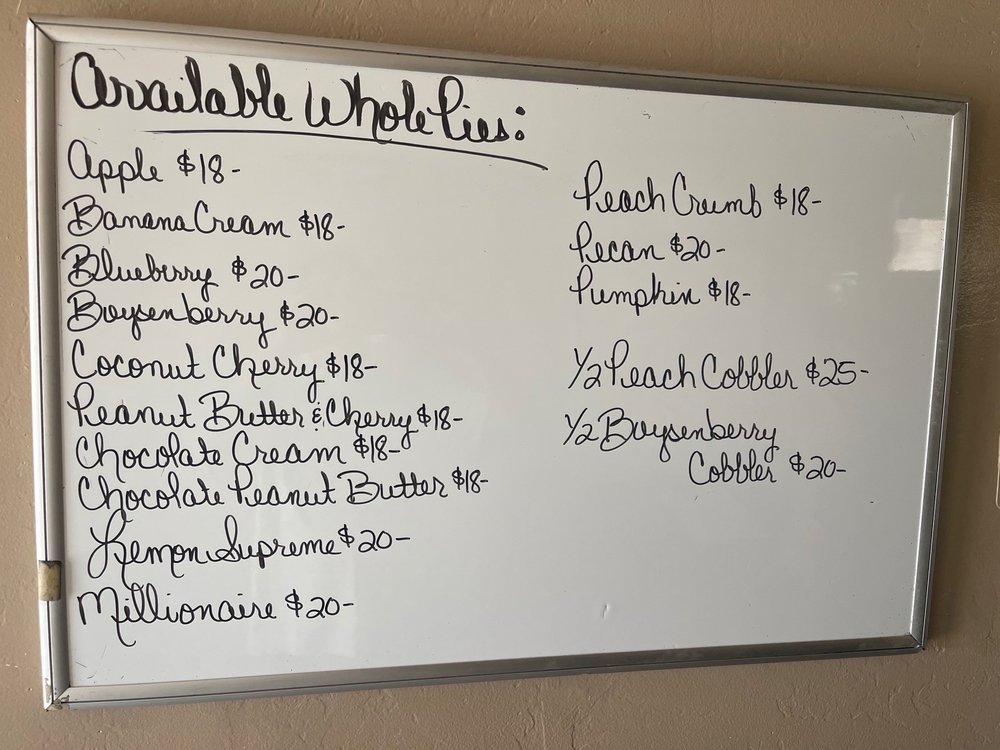 Available Whole Pies:
Apple $18-
Banana Cream $18-
Blueberry $20-
Boysenberry $20-
Coconut Cherry $18-
Peanut Butter & Cherry $18-
Chocolate Cream $18-
Chocolate Peanut Butter $18-
Lemon Supreme $20-
Millionaire $20-
Peach Crumb $18-
Pecan $20-
Pumpkin $18-
1/2 Peach Cobbler $25-
1/2 Boysenberry
Cobbler $20-